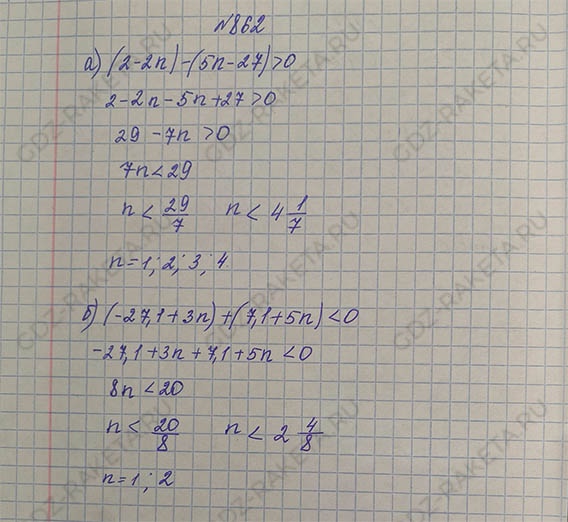 №862
а) (2-2n)-(5n-27)>0
2-2n-5n+27>0
29-7n>0
7n<29
n < 29/7 n < 4 1/7
n=1; 2; 3; 4.
б) (-27,1+3n)+(7,1+5n)<0
-27,1+3n+7,1+5n<0
8n<20
n < 20/8 n < 2 4/8
n=1; 2
GDZ-RAKETA.RU
GDZ-RAKETA.RU
GDZ-RAKETA.RU
GDZ-RAKETA.RU
GDZ-RAKETA.RU
GDZ-RAKETA.RU